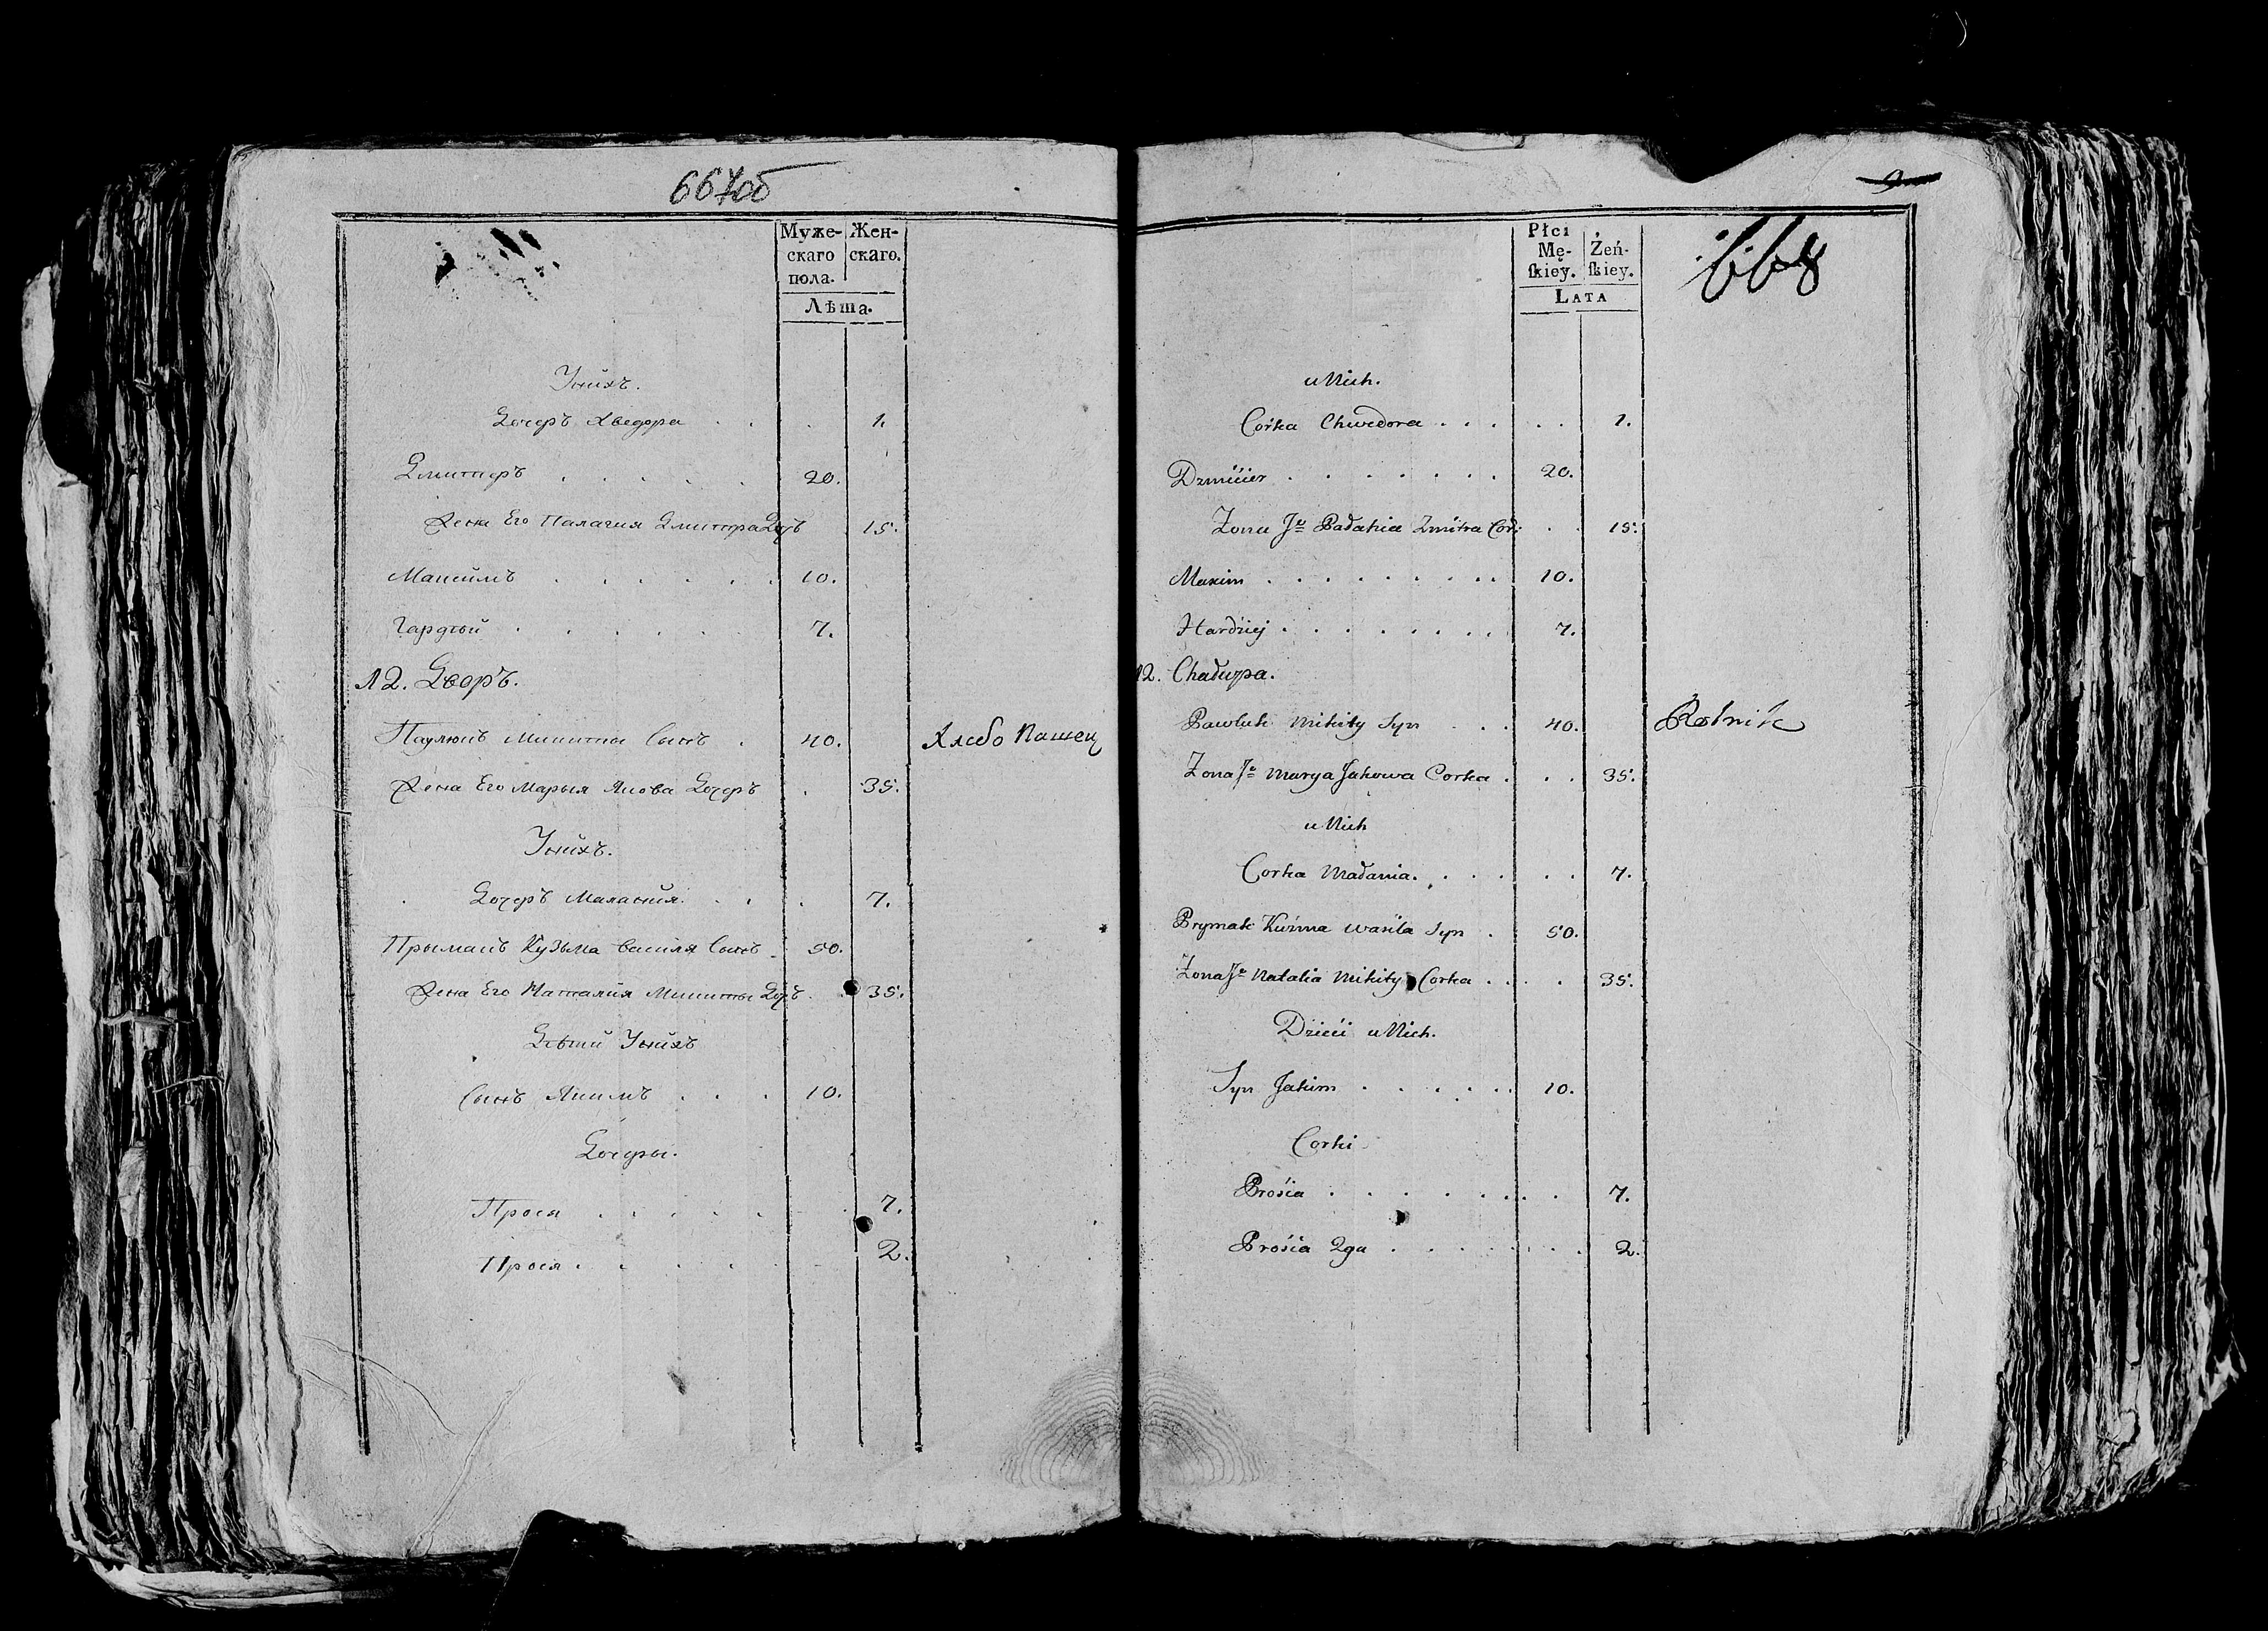 667об
Муже- Жен-
скаго скаго.
пола.
Лѣта.
Унихъ.
Дочеръ Хведора . . . 1.
Дмитеръ . . . . . 20.
Жена Его Палагия Дмитра Доч: 15.
Максимъ . . . . . . 10.
Гардѣй . . . . . 7.
12. Дворъ.
Паулюкъ Микиты Сынъ . 40. Хлебо Пашец
Жена Его Марыя Якова Дочеръ . 35.
Унихъ.
Дочеръ Малания . . . 7.
Прымакъ Кузьма Василя Сынъ . 50.
Жена Его Наталия Микиты Доч: . 35.
Дѣти Унихъ
Сынъ Якимъ . . . 10.
Дочеры.
Прося . . . . . . 7.
Прося . . . . . 2.
9
Płci
Mę- Żeń-
ſkiey. ſkiey.
LATA
668
u Nich.
Corka Chwedora . . . . . 1.
Dzmicier . . . . . . . 20.
Zona Jo Pałahia Zmitra Cor: . . 15.
Maxim . . . . . . . . . 10.
Hardziej . . . . . . . . 7.
12. Chałupa.
Pawluk Mikity Syn . . . 40. Rolnik
Zona Jo Marya Jakowa Corka . . . 35.
u Nich
Corka Małania . . . . . . 7.
Prymak Kuźma Wasila Syn . 50.
Zona Jo Natalia Mikity Corka . . . . 35.
Dzieci u Nich.
Syn Jakim . . . . . . 10.
Corki
Prosia . . . . . . . . 7.
Prosia 2ga . . . . . . . 2.